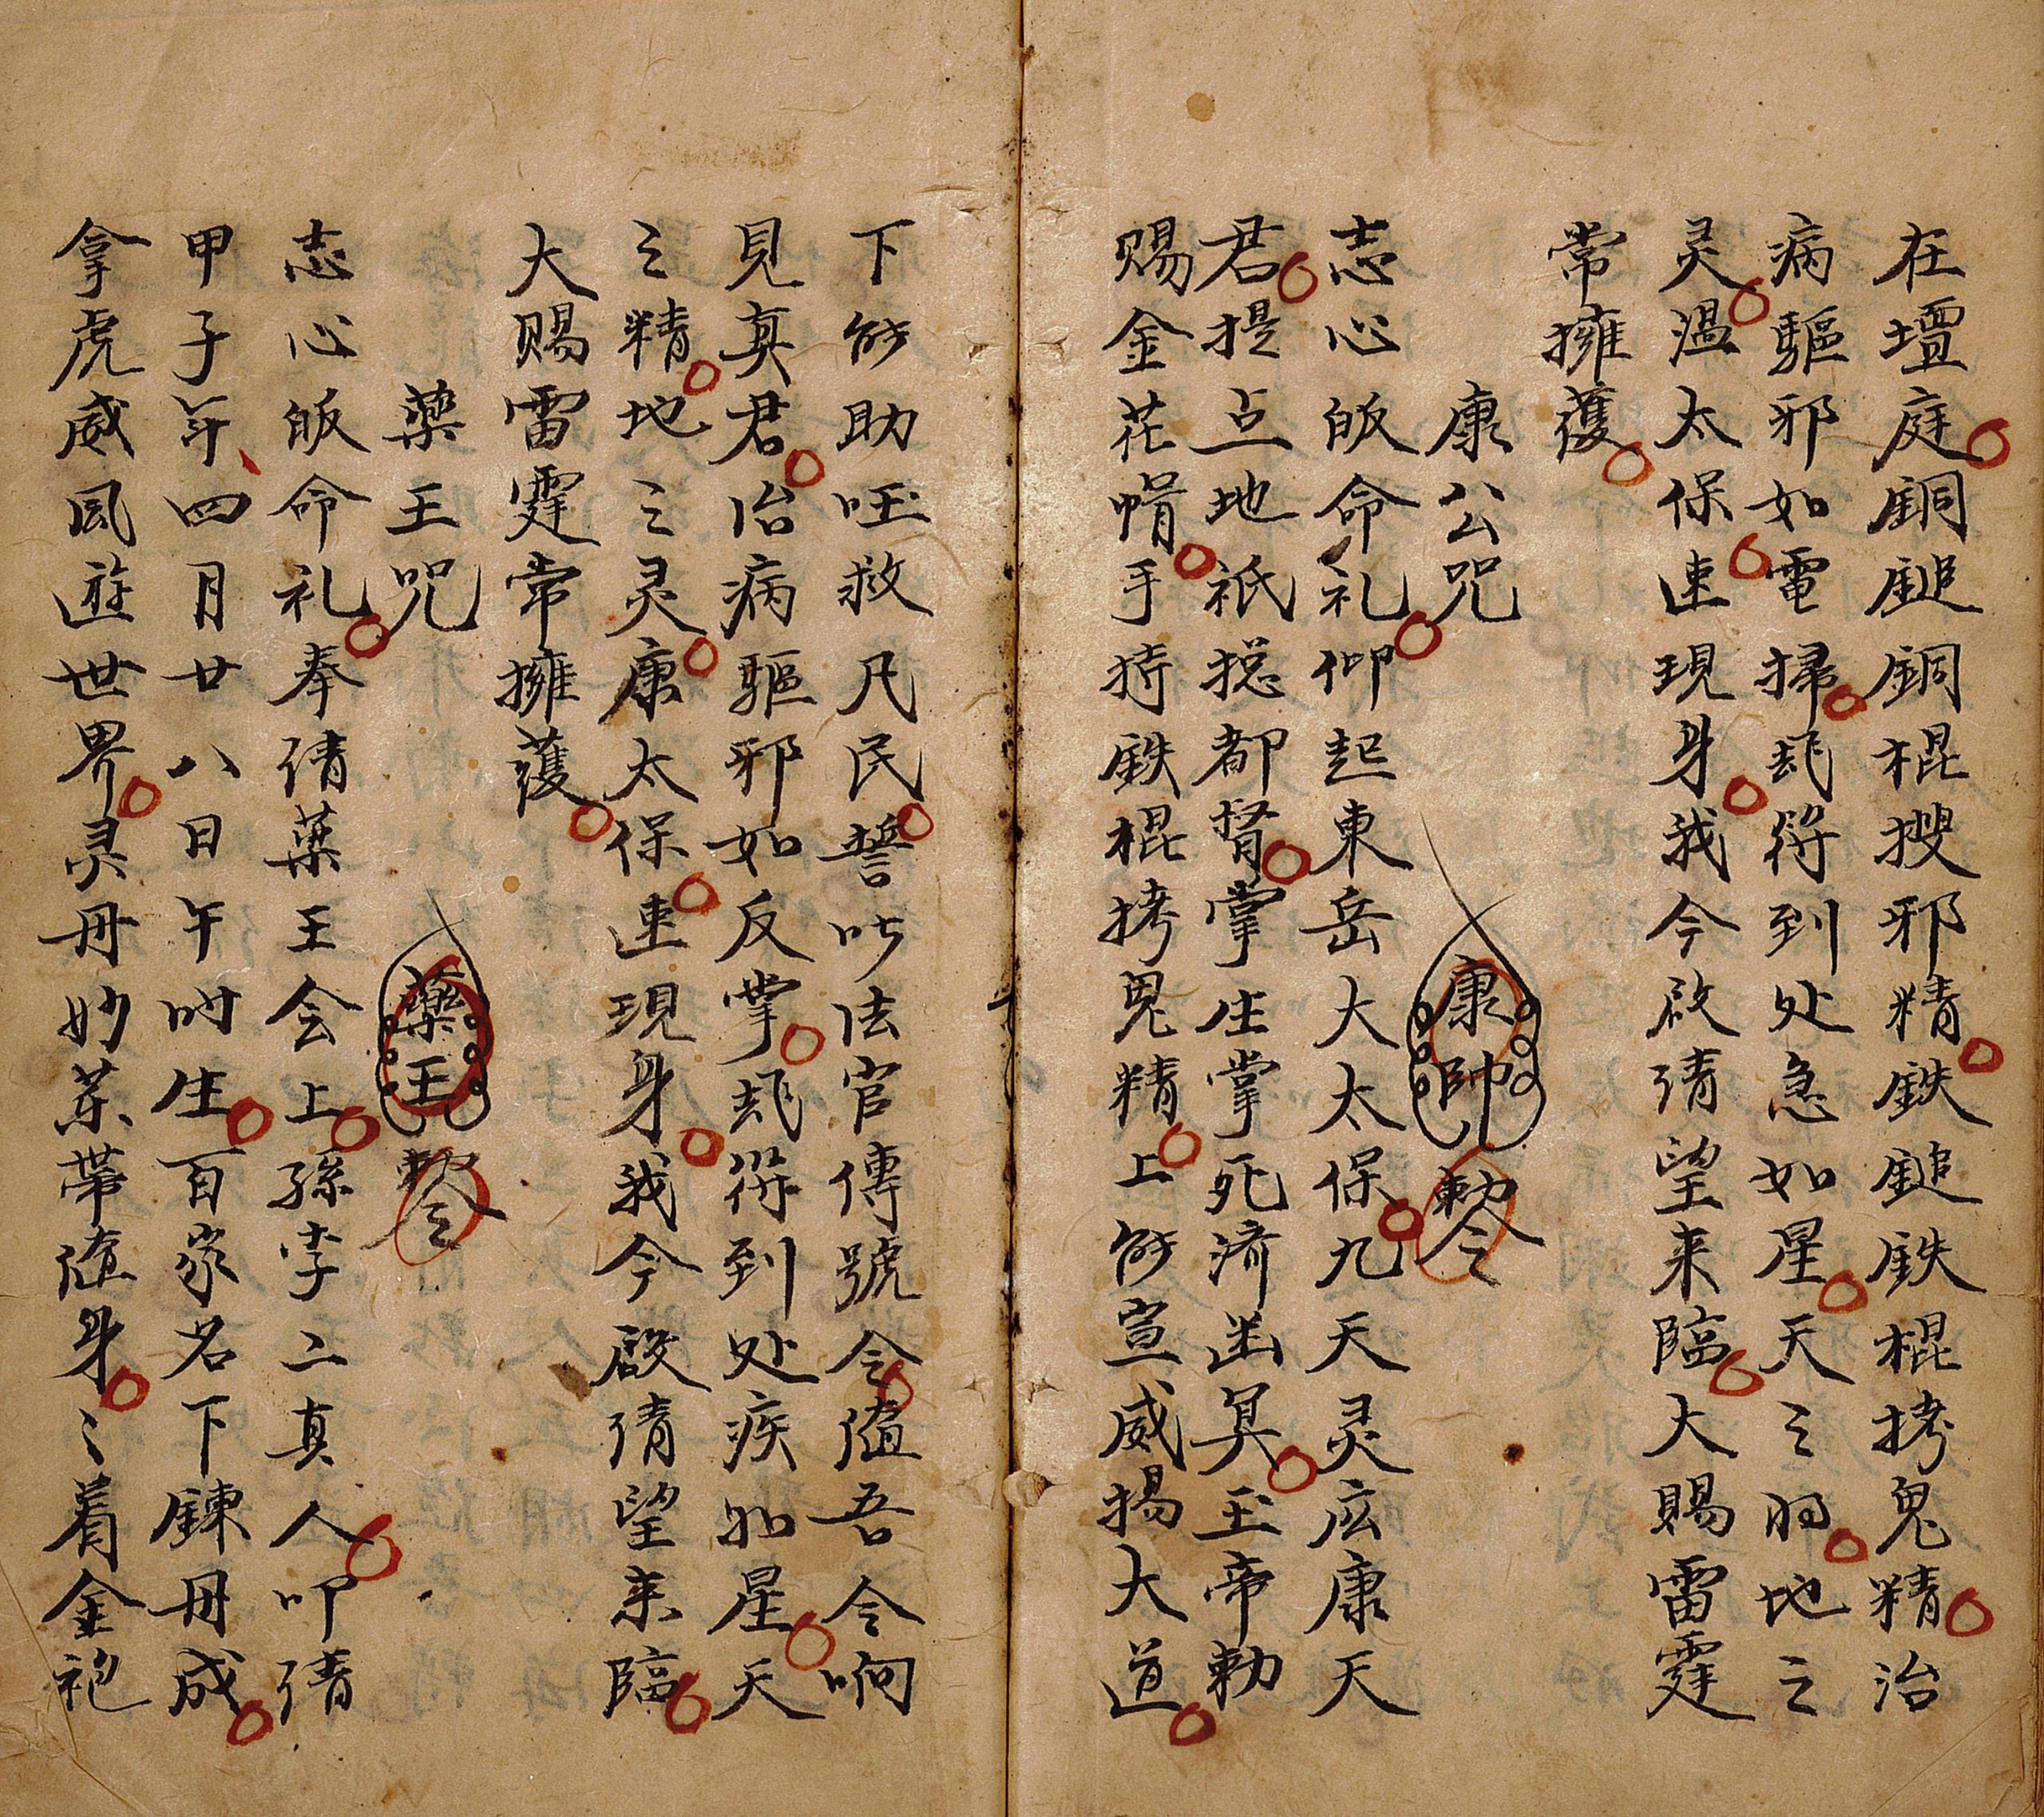 在壇庭銅鎚銅棍搜邪精鉄鎚鉄棍拷鬼精治
病驅邪如電掃符到处急如星天之地之
灵溫太保速現身我今啟請望来臨大賜雷霆
常擁護
康公咒 康帥 勅令
志心皈命礼仰起東岳大太保九天灵应康天
君提点地祇捴都督掌生掌死濟幽冥玉帝勅
赐金花㡎手持鉄棍拷鬼精上能宣威揚大道
下能助国救凡民誓吩法官傳號令随吾令响
見真君治病驅邪如反掌符到处疾如星天
之精地之灵康太保速現身我今啟請望来臨
大赐雷霆常擁護
薬王咒 藥王 勅令
志心皈命礼奉請薬王会上孫李二真人叩請
甲子年四月廿八日午时生百家名下錬丹成
拿虎威风遊世界灵丹妙茶帶随身之着金袍